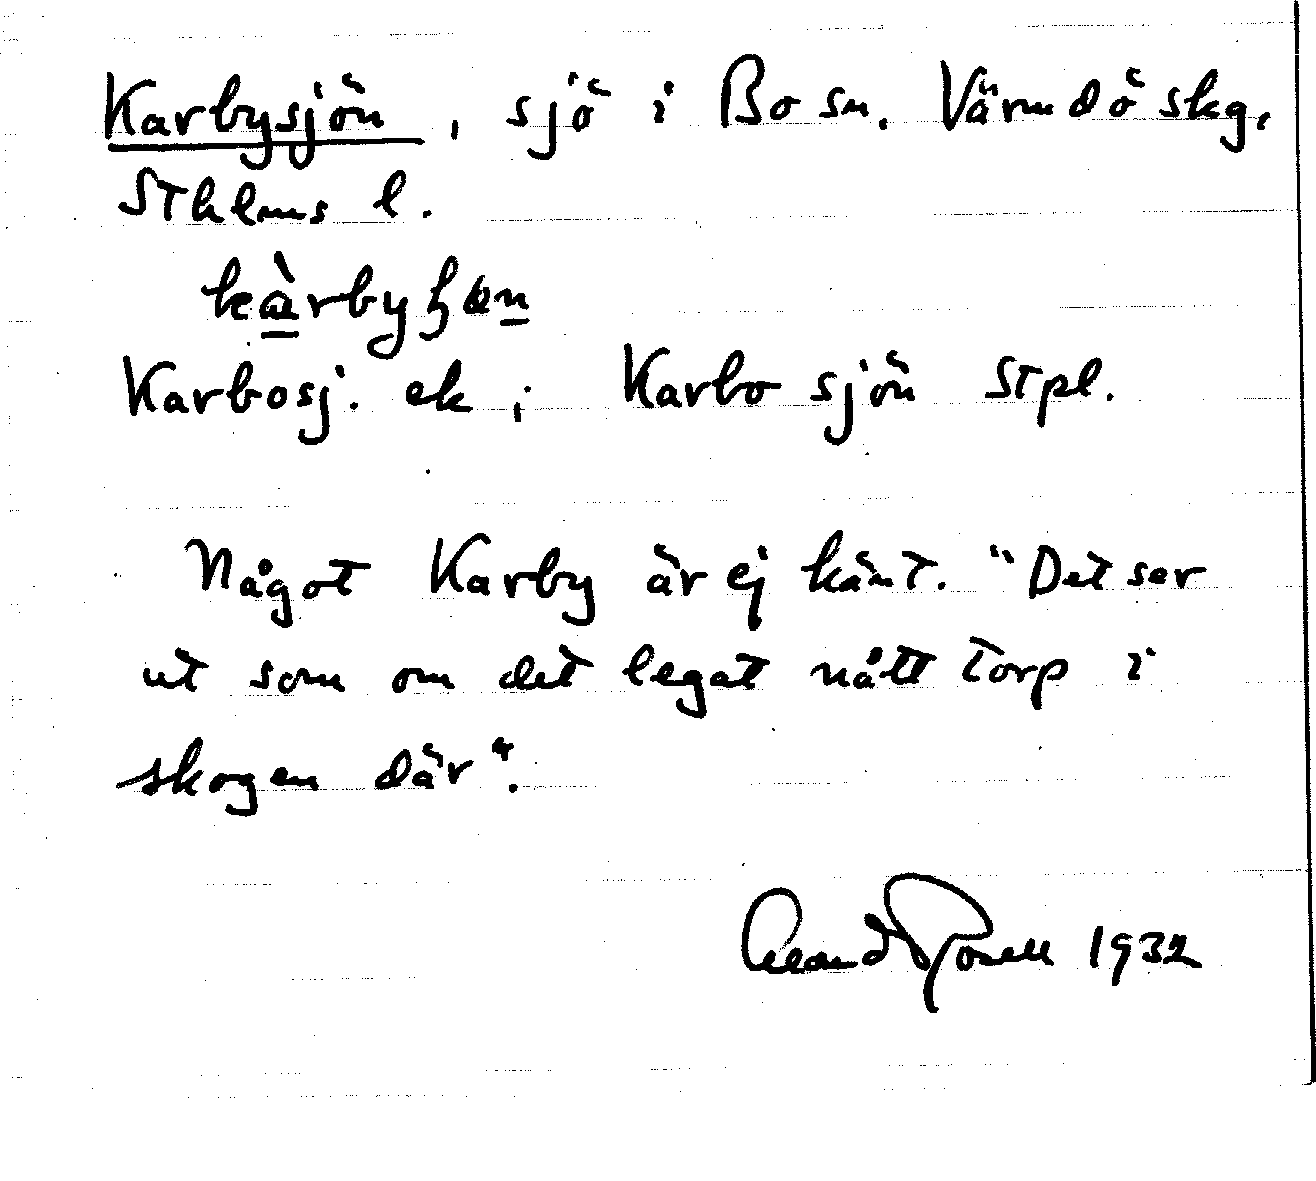 Karbysjön, sjö i Bo sn. Värmdö skg,
Sthlms l.
Karbosj. ek; Karbo sjön stpl.
Något Karby är ej känt. "Det ser
ut som om det legat nått torp i
skogen där".
1932